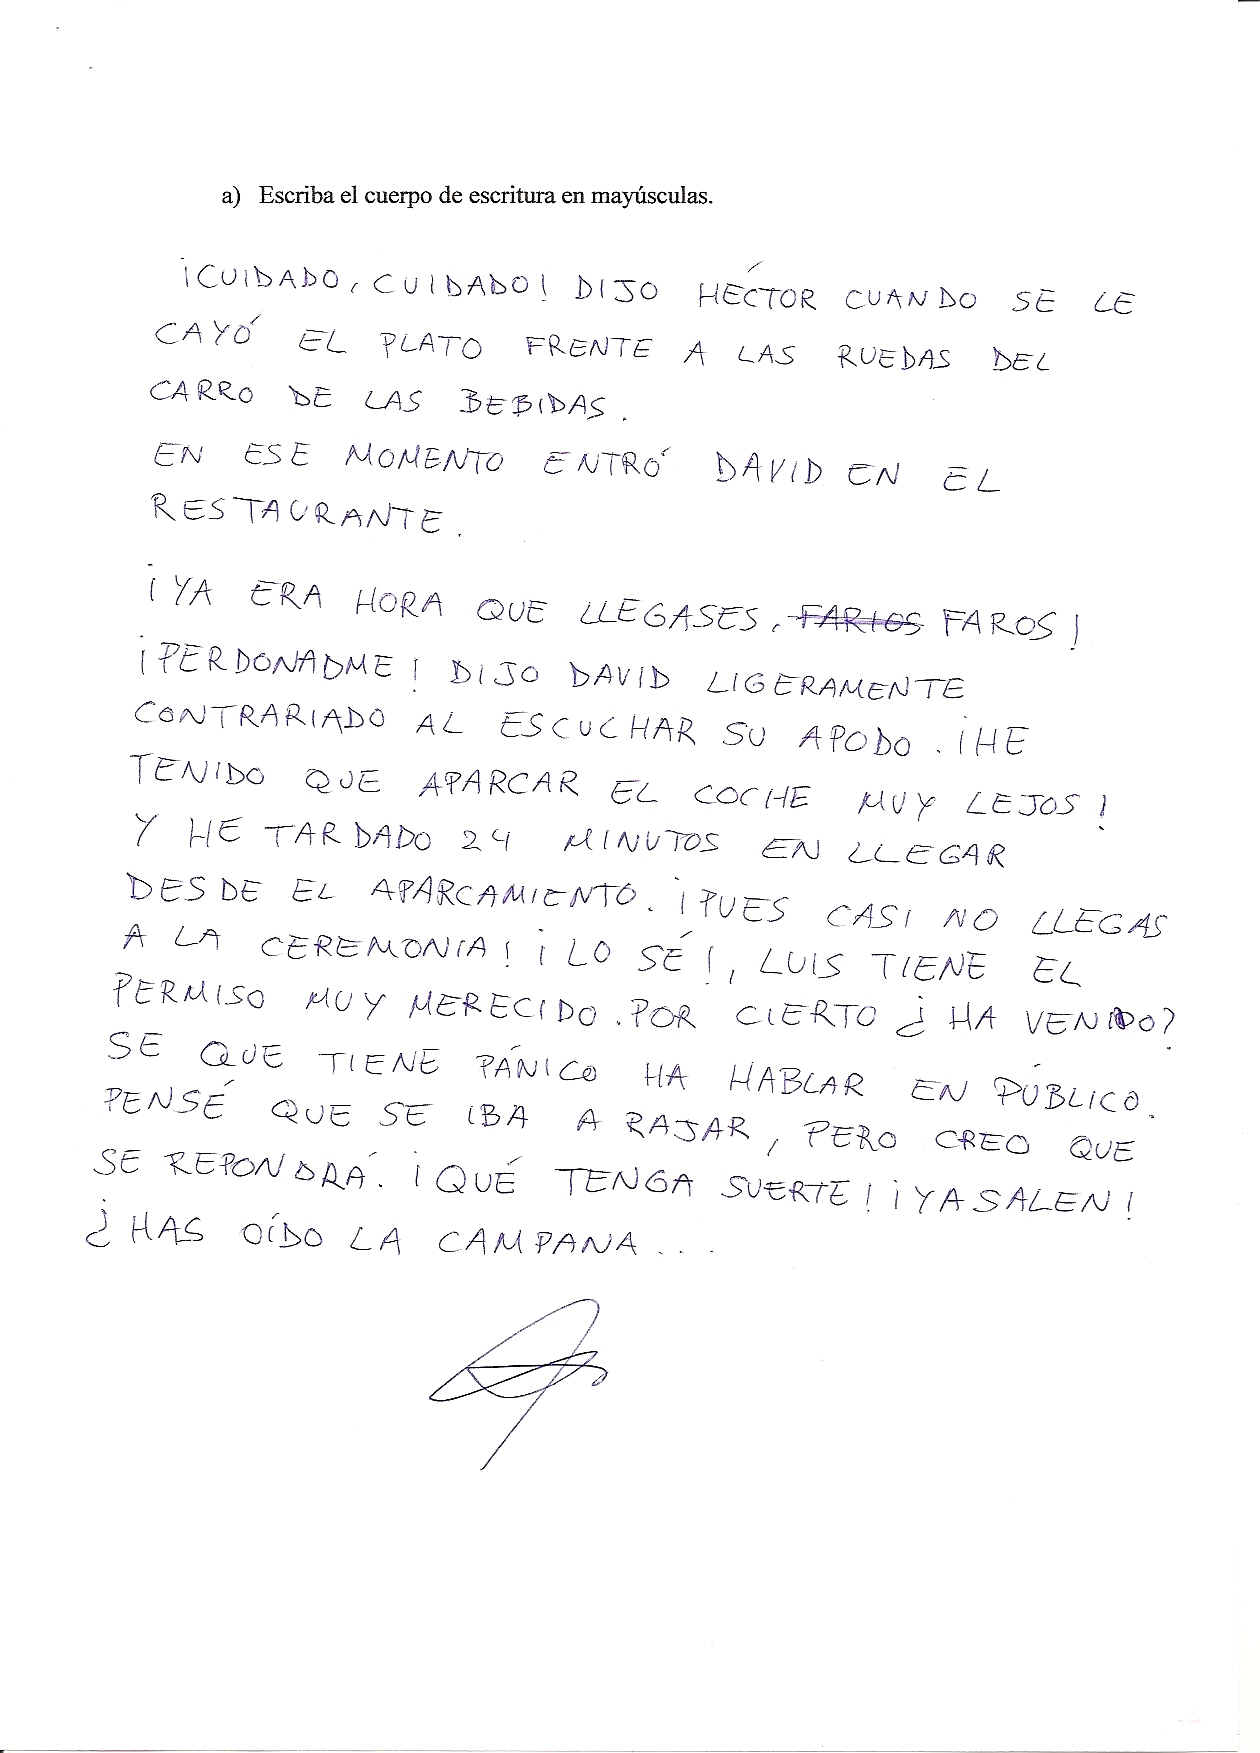 a) Escriba el cuerpo de escritura en mayúsculas.
¡CUIDADO, CUIDADO! DIJO HÉCTOR CUANDO SE LE
CAYÓ EL PLATO FRENTE A LAS RUEDAS DEL
CARRO DE LAS BEBIDAS.
EN ESE MOMENTO ENTRÓ DAVID EN EL
RESTAURANTE.
¡YA ERA HORA QUE LLEGASES, FARIOS FAROS!
¡PERDONADME! DIJO DAVID LIGERAMENTE
CONTRARIADO AL ESCUCHAR SU APODO. ¡HE
TENIDO QUE APARCAR EL COCHE MUY LEJOS!
Y HE TARDADO 24 MINUTOS EN LLEGAR
DESDE EL APARCAMIENTO. ¡PUES CASI NO LLEGAS
A LA CEREMONIA! ¡LO SÉ!, LUIS TIENE EL
PERMISO MUY MERECIDO. POR CIERTO ¿HA VENIDO?
SE QUE TIENE PÁNICO HA HABLAR EN PÚBLICO.
PENSÉ QUE SE IBA A RAJAR, PERO CREO QUE
SE REPONDRÁ. ¡QUÉ TENGA SUERTE! ¡YA SALEN!
¿HAS OÍDO LA CAMPANA...